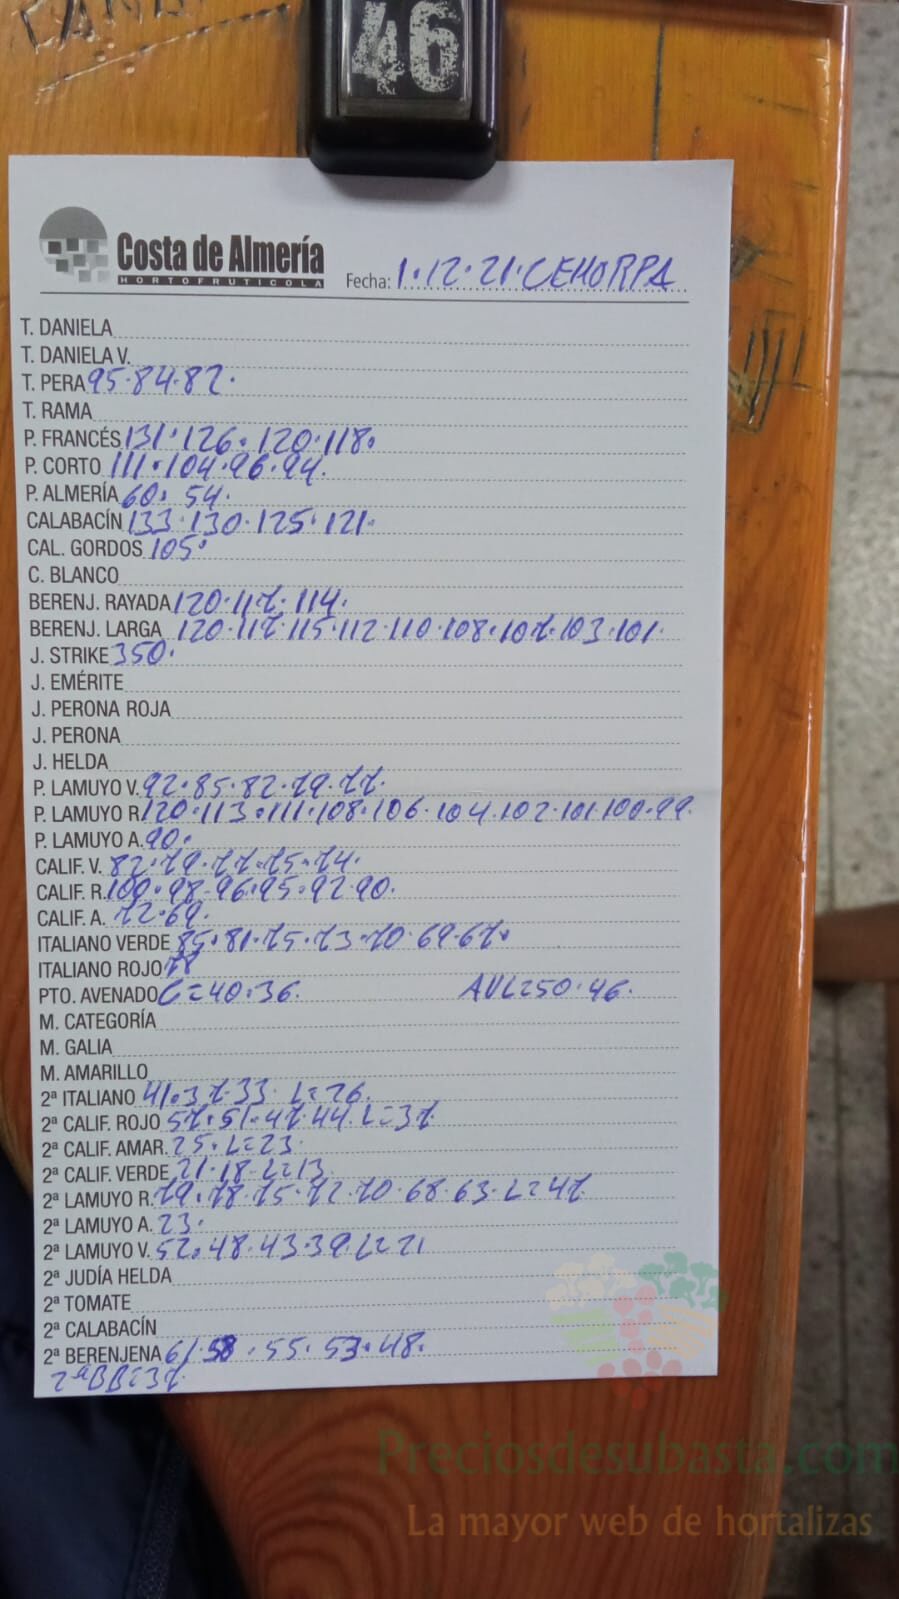 46
Costa de Almería
HORTOFRUTICOLA
Fecha: 1·12·21·CEHORPA
T. DANIELA
T. DANIELA V.
T. PERA 95·84·82·
T. RAMA
P. FRANCÉS 131·126·120·118·
P. CORTO 111·104·96·94·
P. ALMERÍA 60·54·
CALABACÍN 133·130·125·121·
CAL. GORDOS 105·
C. BLANCO
BERENJ. RAYADA 120·117·114·
BERENJ. LARGA 120·117·115·112·110·108·107·103·101·
J. STRIKE 350·
J. EMÉRITE
J. PERONA ROJA
J. PERONA
J. HELDA
P. LAMUYO V. 92·85·82·79·77·
P. LAMUYO R. 120·113·111·108·106·104·102·101·100·99·
P. LAMUYO A. 90·
CALIF. V. 82·79·77·75·74·
CALIF. R. 100·98·96·95·92·90·
CALIF. A. 72·69·
ITALIANO VERDE 85·81·75·73·70·69·67·
ITALIANO ROJO 78
PTO. AVENADO C=40·36· AVL=50·46·
M. CATEGORÍA
M. GALIA
M. AMARILLO
2ª ITALIANO 41·37·33· L=26
2ª CALIF. ROJO 57·51·47·44· L=37
2ª CALIF. AMAR. 25· L=23
2ª CALIF. VERDE 21·18· L=13
2ª LAMUYO R. 79·78·75·72·70·68·63· L=47
2ª LAMUYO A. 23·
2ª LAMUYO V. 52·48·43·39· L=21
2ª JUDÍA HELDA
2ª TOMATE
2ª CALABACÍN
2ª BERENJENA 61·58·55·53·48·
2ªBB=37
Preciosdesubasta.com
La mayor web de hortalizas